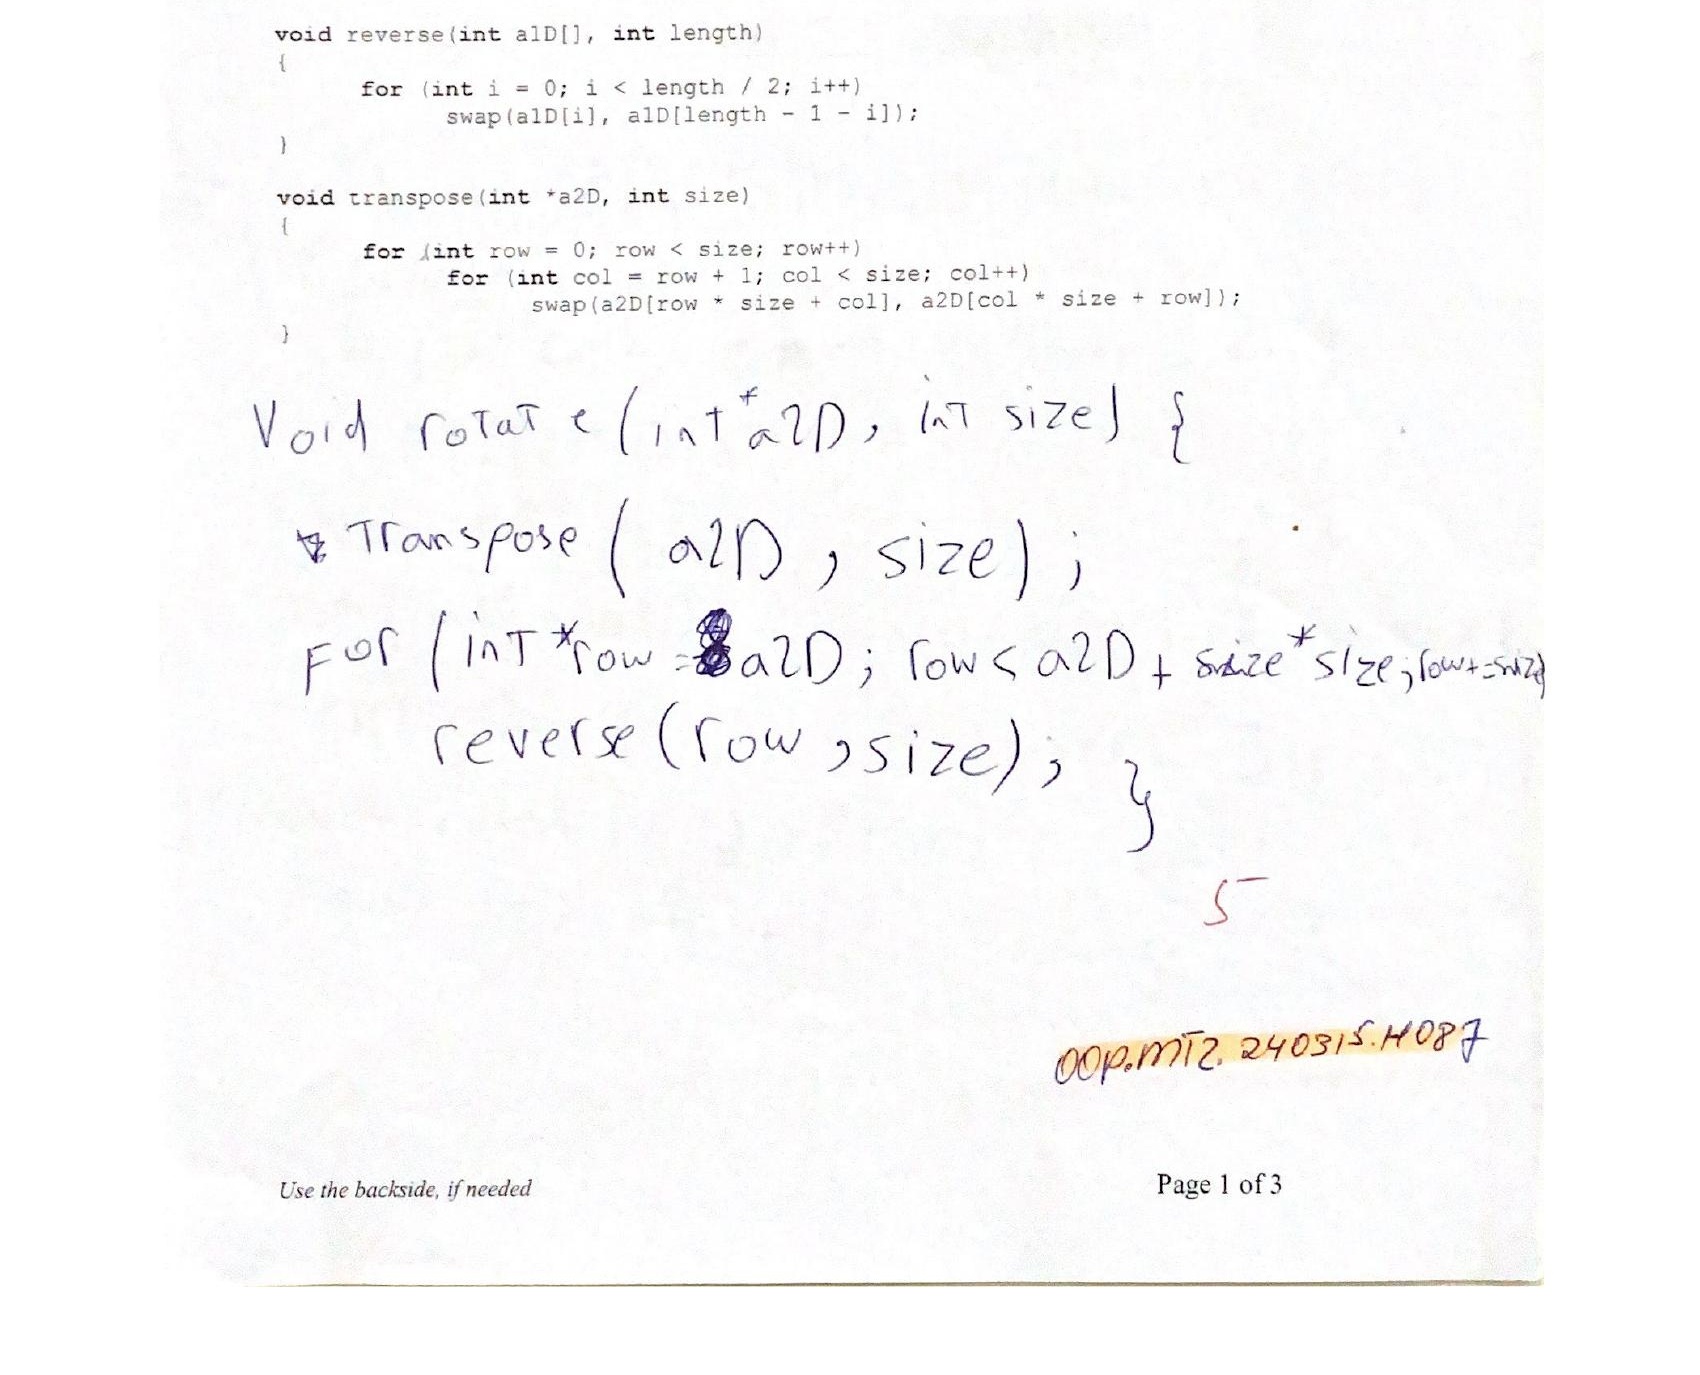 void reverse(int a1D[], int length)
{
for (int i = 0; i < length / 2; i++)
swap(a1D[i], a1D[length - 1 - i]);
}
void transpose(int *a2D, int size)
{
for (int row = 0; row < size; row++)
for (int col = row + 1; col < size; col++)
swap(a2D[row * size + col], a2D[col * size + row]);
}
Void rotate (int *a2D, int size) {
Transpose ( a2D , size) ;
For (int *row = a2D; row < a2D + size * size; row+=size)
reverse (row , size) ; }
5
OOP.MT2. 240315.H087
Use the backside, if needed
Page 1 of 3